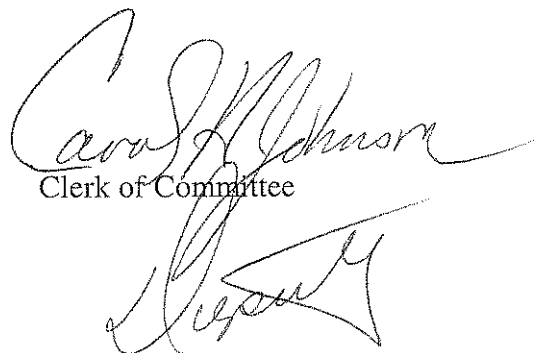 Carol K Johnson
Clerk of Committee
Deputy